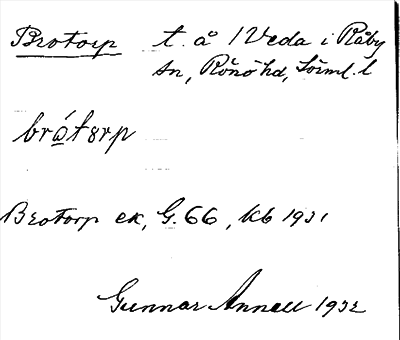 Brotorp t. å 1 Veda i Råby
sn, Rönö hd, Sörml. l
brótorp
Brotorp ek, G. 66, kb 1931
Gunnar Annell 1932